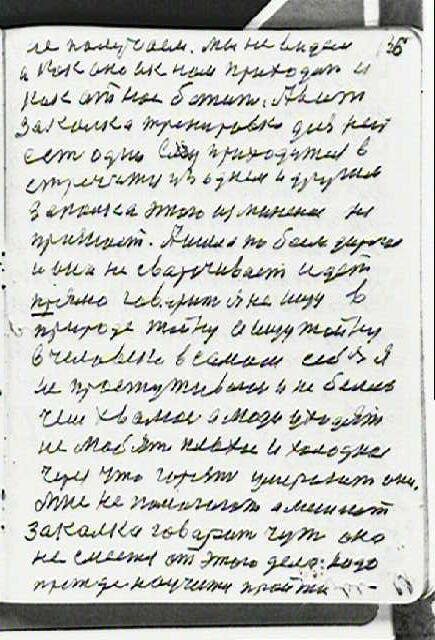 не получаем. Мы не видем 136
а как оно к нам приходит и
как от нас бежит. А вот
Закалка тренировка для ней
ест одно ему приходится в
стречатся из одним и другим
Закалка этого изменение не
признает. А шла по боль дороге
и она не сварачивает идет
прямо говорит я не ищу в
природе тайну а ищу тайну
в человеке в самом себе я
не простуживаюсь и не болею
чем хвалюсь а люди уходят
не любят плохое и холодное
через что горько умерают они.
Мне не помогают а мешают
Закалка говорит чут оно
не смеется от этого дела. надо
прежде научится пройти